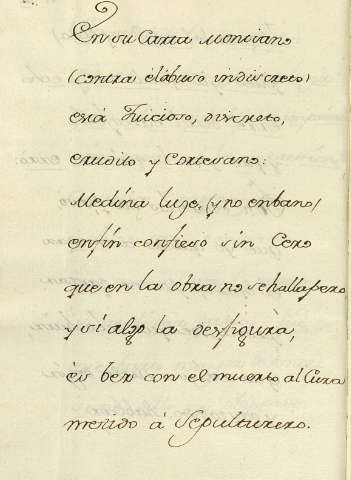 En su Carta Montano
(contra el abuso indiscreto)
está Juicioso, discreto,
erudito y Cortesano:
Medina luze, (y no enbano)
enfin confieso sin Cero
que en la obra no se halla pero
y si algo la desfigùra,
es ber con el muerto al Cura
metido à Sepulturero.